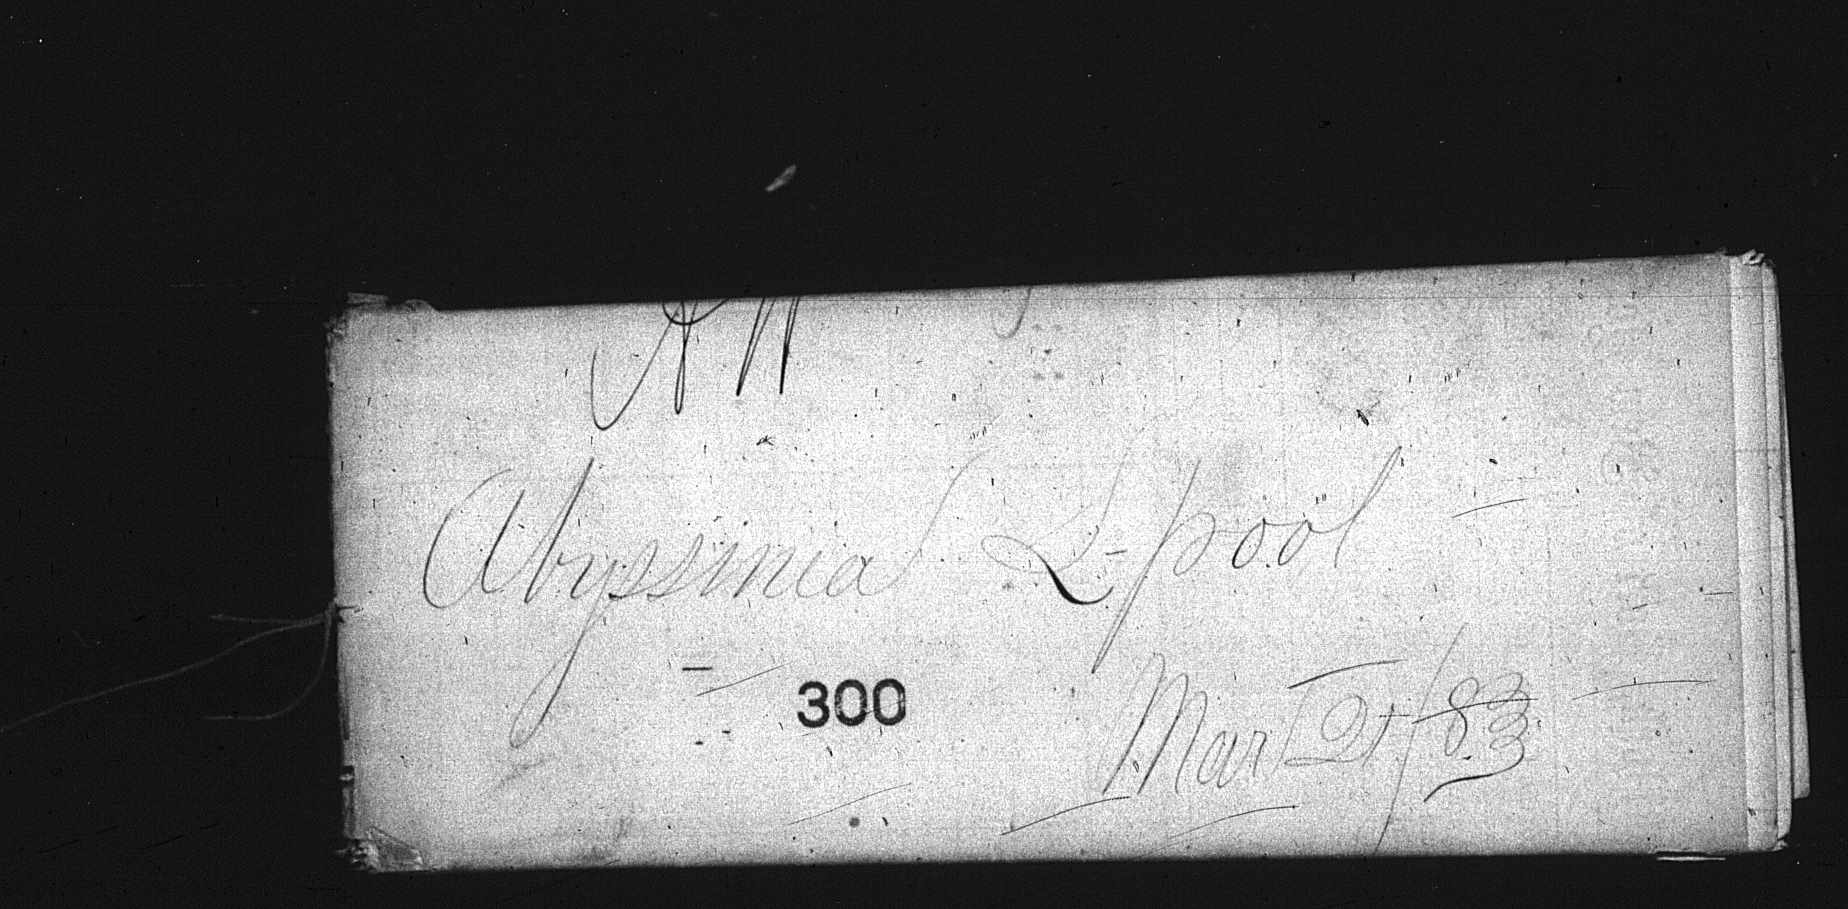 Abyssinia L-pool -
300
Mar 21/83